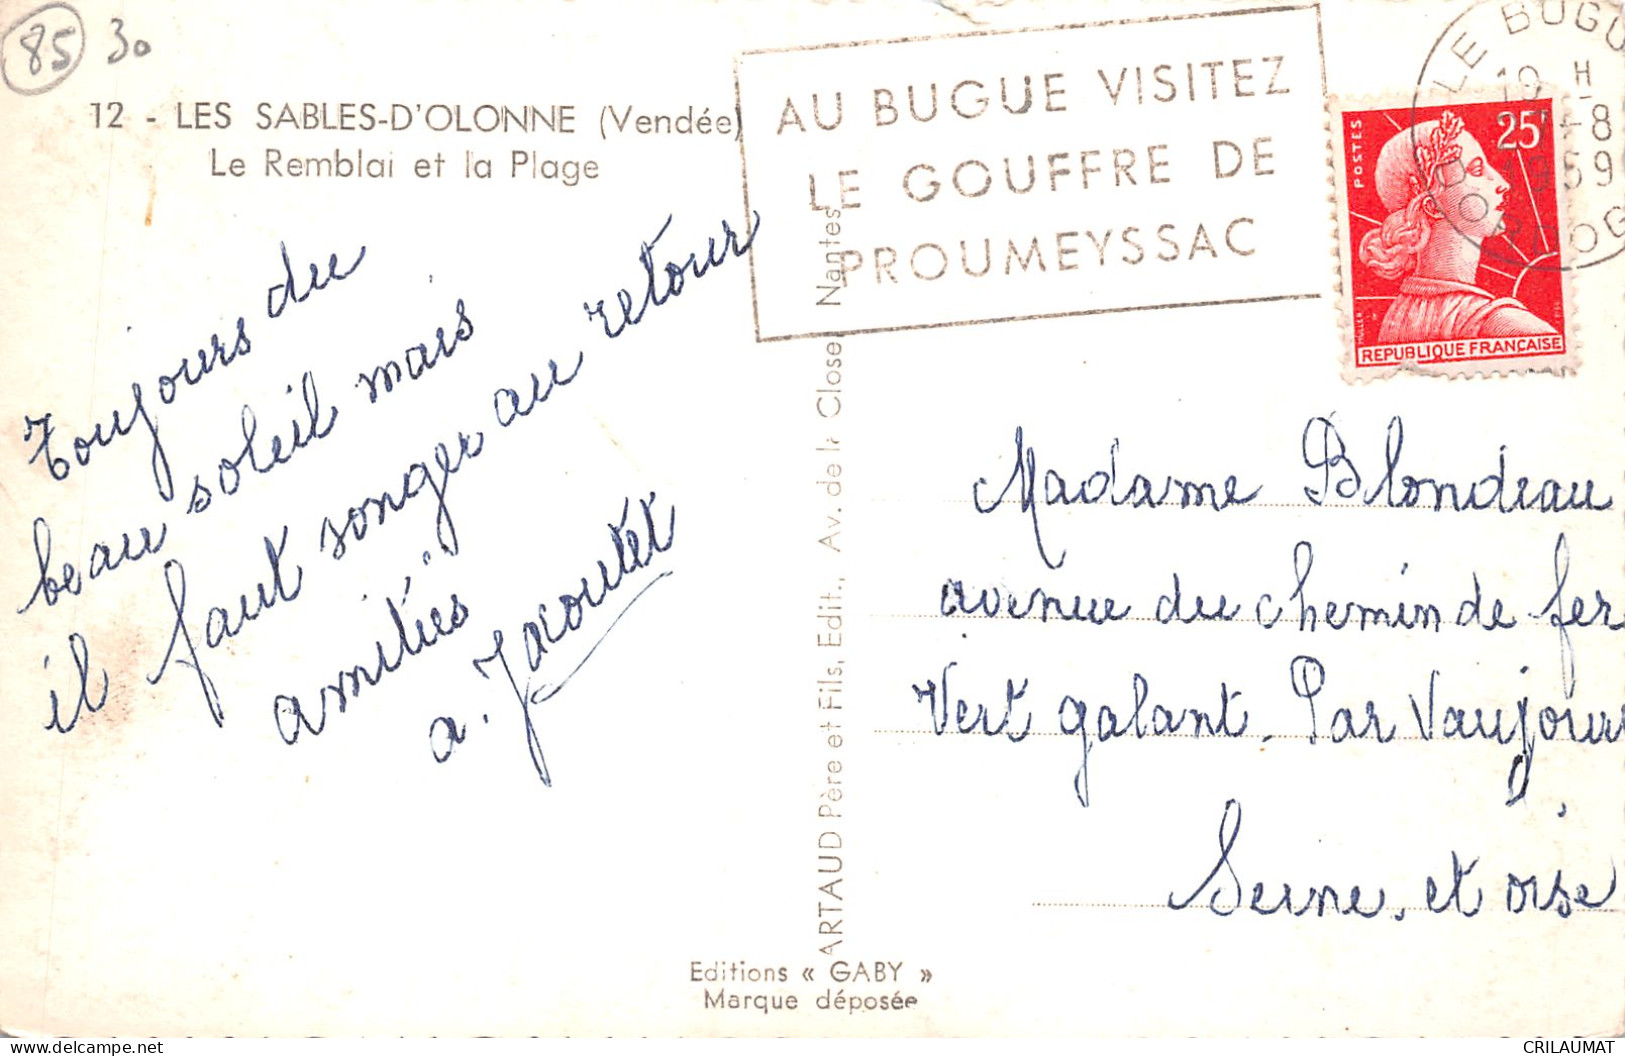 85 30
12 - LES SABLES-D'OLONNE (Vendée)
Le Remblai et la Plage
AU BUGUE VISITEZ
LE GOUFFRE DE
PROUMEYSSAC
LE BUGUE
19 H
-8
1959
DORDOG
POSTES
25F
MULLER
REPUBLIQUE FRANÇAISE
Toujours du
beau soleil mais
il faut songer au retour
amitiés
a. Jacoutet
ARTAUD Père et Fils, Edit., Av. de la Close Nantes
Madame Blondeau
avenue du chemin de fer
Vert galant. Par Vaujours
Seine. et oise
Editions « GABY »
Marque déposée
CRILAUMAT